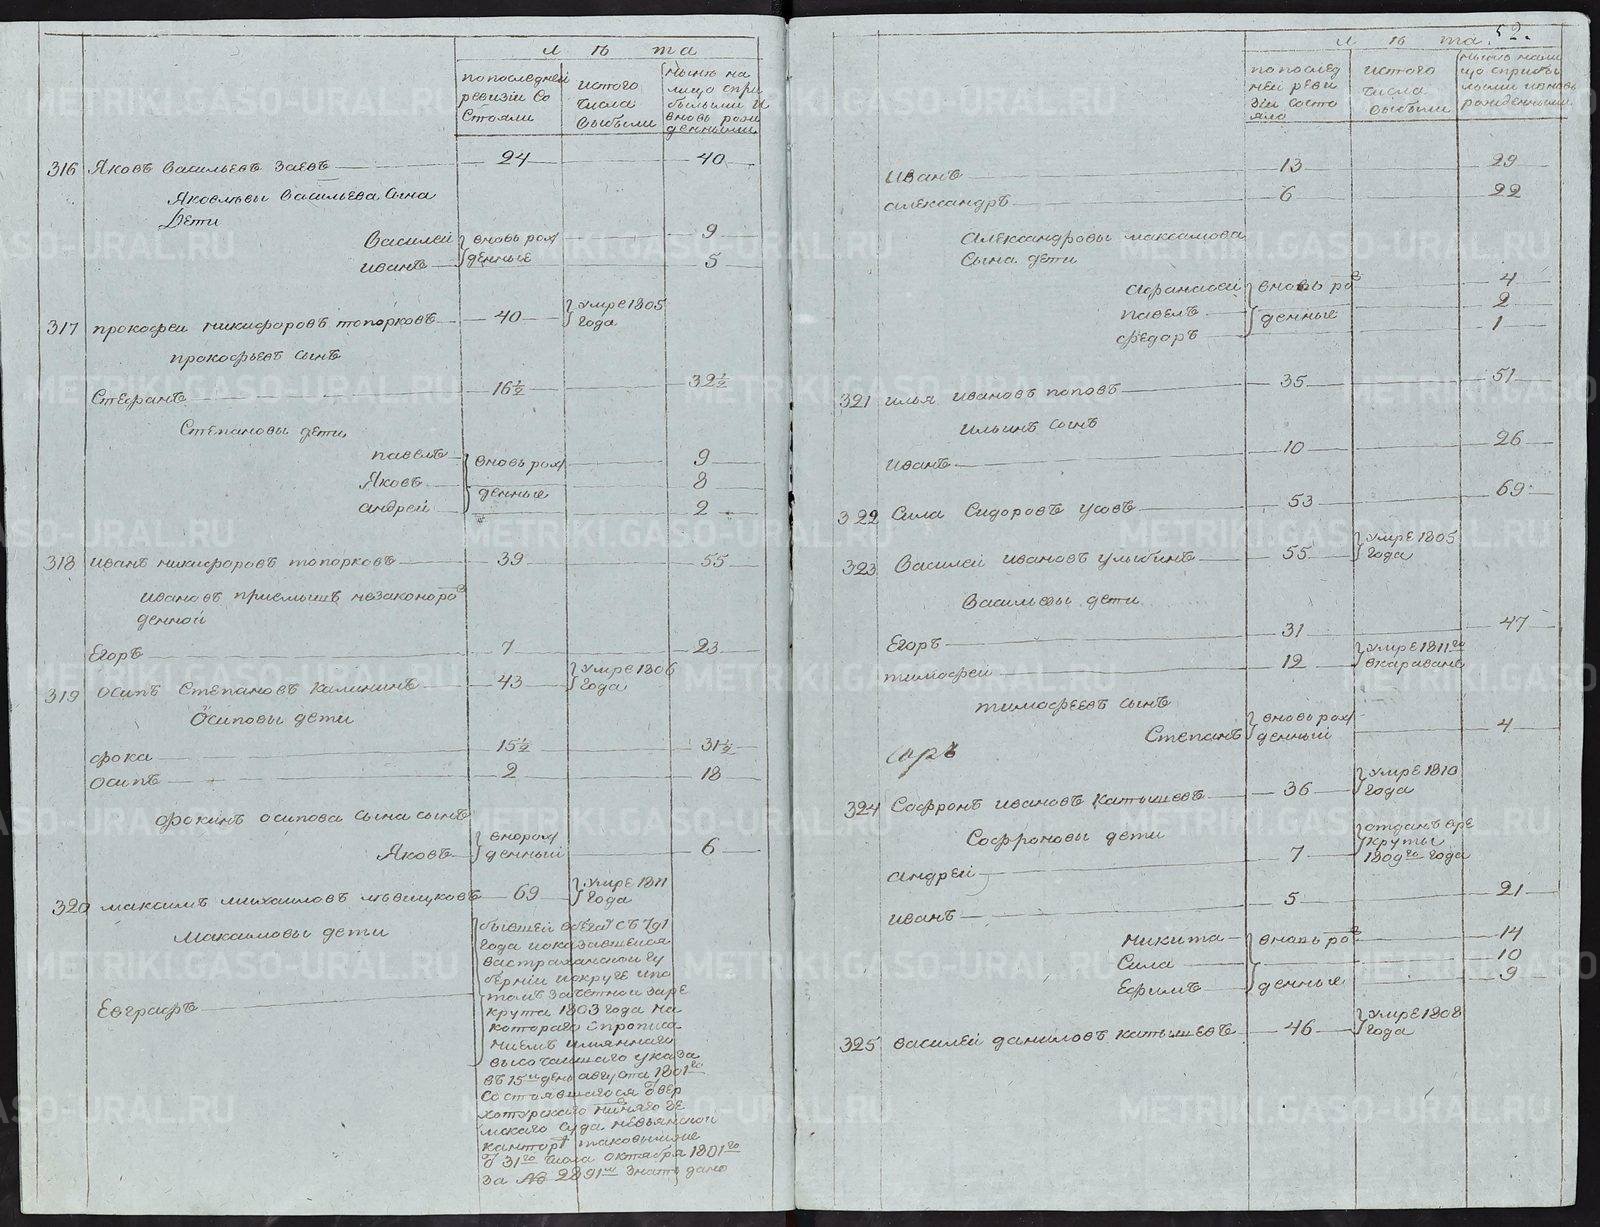 лѣта
по последней ревизiи Состояли
истого числа выбыли
ныне на лицо сприбылыми и вновь рожденными
316 Яковъ васильевъ заевъ 24 40
Яковлевы васильева Сына
Дети
Василей вновь рож 9
иванъ денные 5
317 прокофеи никифоровъ топорковъ 40 умре 1805 года
прокофьевъ сынъ
Стефанъ 16½ 32½
Степановы дети
павелъ вновь рож 9
Яковъ денные 8
андрей 2
318 иванъ никифоровъ топорковъ 39 55
ивановъ приемышъ незаконоро
денной
Егоръ 7 23
319 осипъ Степановъ калининъ 43 умре 1806 года
Осиповы дети
фока 15½ 31½
осипъ 2 18
фокинъ осипова сына сынъ
Яковъ вно рож денный 6
320 максимъ михаиловъ 69 умре 1811 года
Максимовы дети
Евграфъ
бывшей вбегах съ
года показавшейся
вастраханской гу
бернiи
крута 1803 года на
котораго спрописа
нiемъ имяннаго
высочайшаго указа
въ 15 день августа 1801го
Состоявшагося
хотурскаго
мскаго суда невьянской
канторе
31го числа октября 1801го
за № 2891м знать дано
52.
лѣта
по последней ревизiи состояло
истого числа выбыли
ныне налицо сприбылыми ивновь рожденными
иванъ 13 29
александръ 6 22
Александровы максимова
Сына дети
афанасей вновь ро 4
павелъ денные 2
федоръ 1
321 илья ивановъ поповъ 35 51
ильинъ сынъ
иванъ 10 26
322 Сила Сидоровъ усовъ 53 69
323 Василей ивановъ улыбинъ 55 умре 1805 года
Васильевы дети
Егоръ 31 47
тимофей 12 умре 1811го вкараване
тимофеевъ сынъ
Степанъ вновь рож денный 4
324 Софронъ ивановъ катышевъ 36 умре 1810 года
Софроновы дети
андрей 7 отданъ вре круты 1809го года
иванъ 5 21
никита вновь ро 14
Сила денные 10
Ефимъ 9
325 василей даниловъ катышевъ 46 умре 1808 года
METRIKI.GASO-URAL.RU